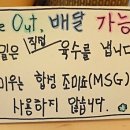 e Out, 배달 가능
직접
육수를 냅니다
하성 조미료(MSG)
사용하지 않습니다.